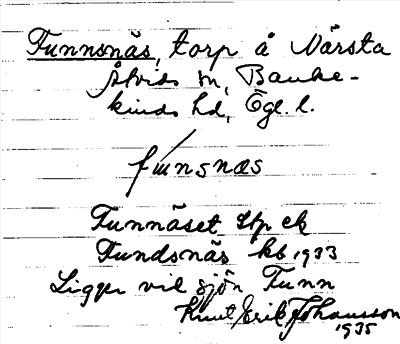 Funnsnäs, torp å Närsta
Åtvids sn, Banke-
kinds hd, Ögl. l.
funsnæs
Funnäset Stp ek
Fundsnäs kb 1933
Ligger vil sjön Funn
Knut Erik Johansson
1935